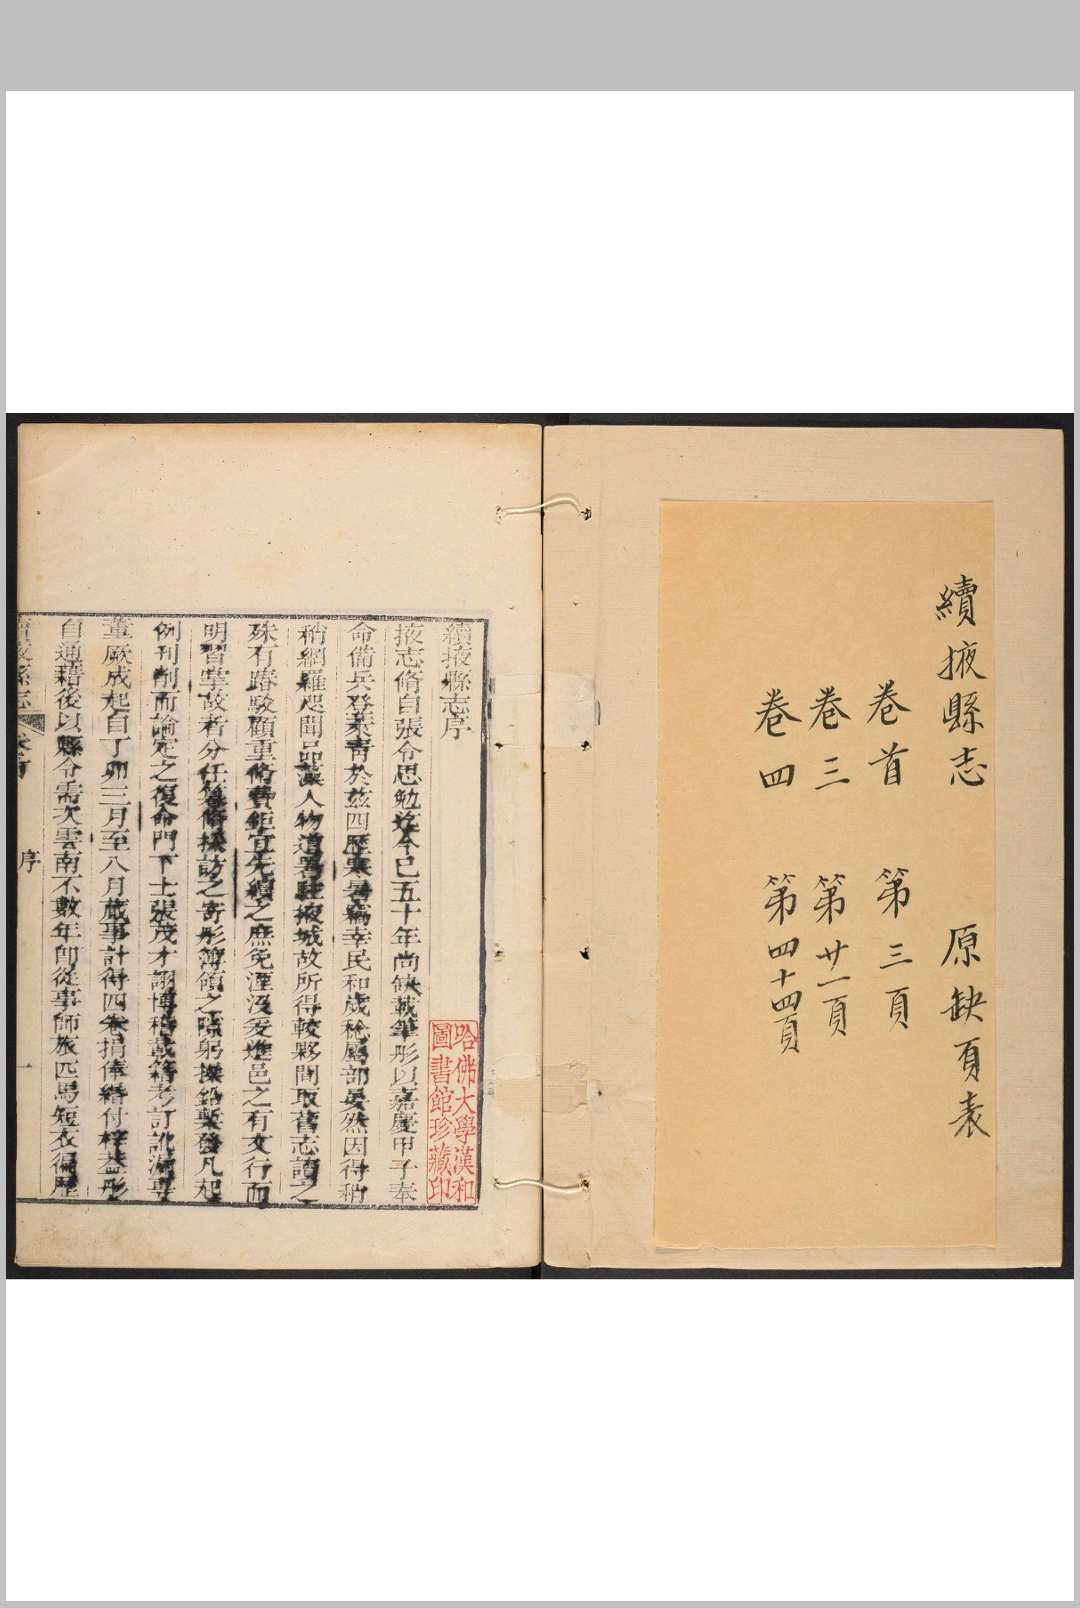 續掖縣志 原缺頁表
卷首 第三頁
卷三 第廿一頁
卷四 第四十四頁
續掖縣志序
掖志脩自張令思勉迄今已五十年尚缺載筆彤以嘉慶甲子奉
命備兵登萊靑於茲四歷寒暑竊幸民和歲稔屬部晏然因得稍
稍網羅咫聞品藻人物道署駐掖城故所得較夥間取舊志讀之
殊有踳駁顧重脩費鉅宜先續之庶免湮沒爰進邑之有文行而
明習掌故者分任脩採訪之寄彤簿領之隙躬操鉛槧發凡起
例刊削而論定之復命門下士張茂才詡博稽載籍考訂訛漏專
董厥成起自丁卯三月至八月蕆事計得四卷捐俸繕付梓益彤
自通籍後以縣令需次雲南不數年即從事師旅匹馬短衣徧歷
續掖縣志 卷首 序 一
哈佛大學漢和
圖書館珍藏印